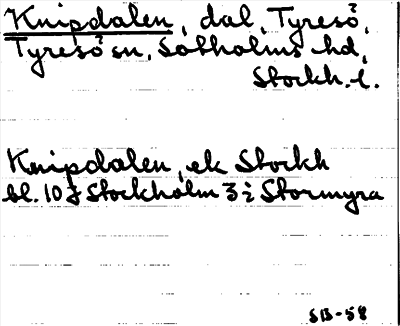 Knipdalen, dal, Tyresö,
Tyresö sn, Sotholms hd,
Stockh. l.
Knipdalen, ek Stockh
bl. 10 f Stockholm 3 i Stormyra
SB-58